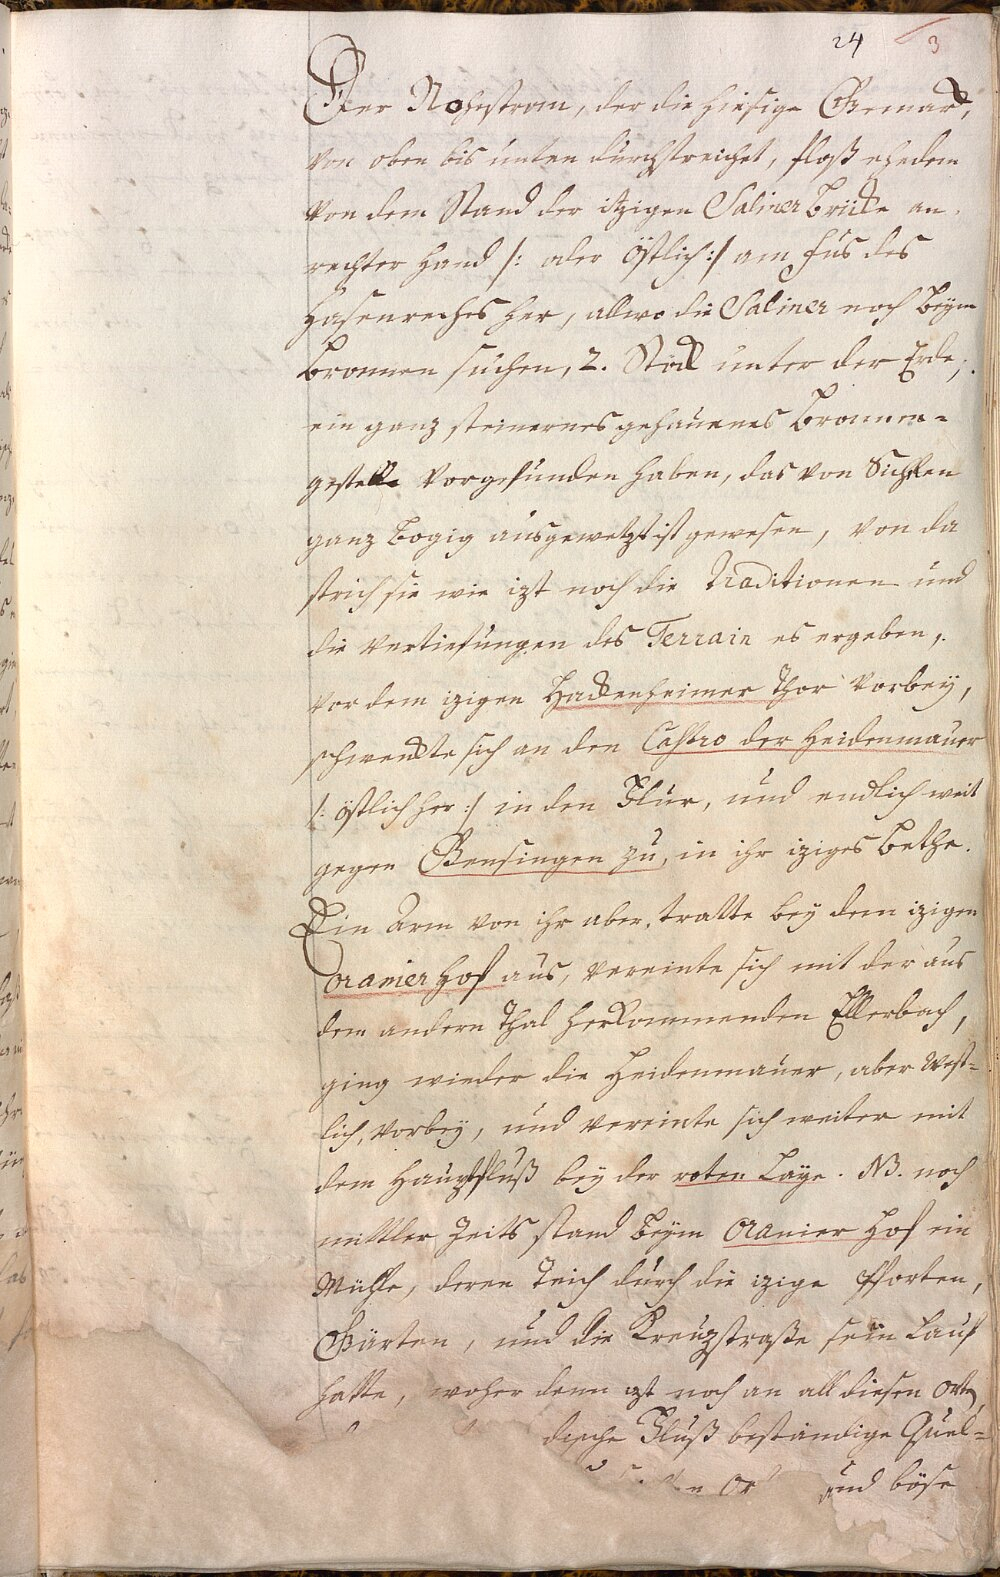 24 3
Der Nohestrom, der die hiesige Gemarck,
von oben bis unten durchstreichet, floß ehedem
von dem Stand der itzigen Saliner Brücke an,
rechter Hand /: oder östlich :/ am Fus des
Hasenreches her, allwo die Saliner noch beym
Bronnen suchen, 2. Stock unter der Erde,
ein ganz steinernes gehauenes Bronnen-
gestelle vorgefunden haben, das von
ganz bogig ausgewetzt ist gewesen, von da
strich sie wie izt noch die Traditionen und
die Vertiefungen des Terrain es ergeben,
vor dem izigen Hackenheimer Thor vorbey,
schwenckte sich an den Castro der Heidenmauer
/: östlich her :/ in den Flur, und endlich weit
gegen Gensingen zu, in ihr iziges Bethe.
Ein Arm von ihr aber, tratte bey dem izigen
oranier Hof aus, vereinte sich mit der aus
dem andern Thal herkommenden Ellerbach,
ging wieder die Heidenmauer, aber West-
lich, vorbey, und vereinte sich weiter mit
dem Hauptfluß bey der roten Laye. NB. noch
mittler Zeits stand beym Oranier Hof ein
Mühle, deren Teich durch die izige Pforten,
Gärten, und die Kreuzstraße sein Lauf
hatte, woher denn izt noch an all diesen Orte
dische Fluß beständige Quel-
und böse